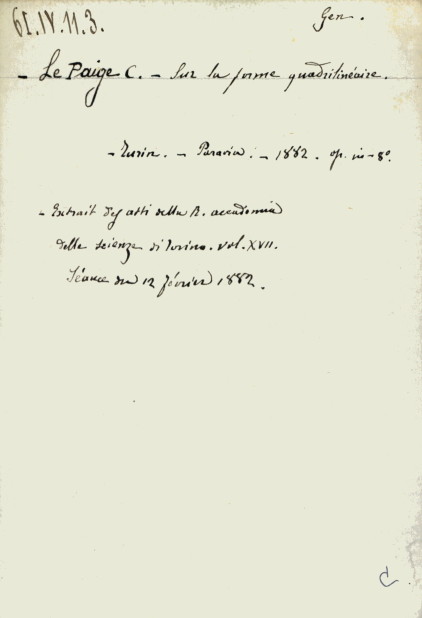 61.IV.11.3.
Gen.
- Le Paige C. - Sur la forme quadrilinéaire.
- Turin. - Paravia. - 1882. op. in-8º.
- Extrait des atti della R. accademia
delle scienze di Torino. vol. XVII.
Séance du 12 février 1882.
C.